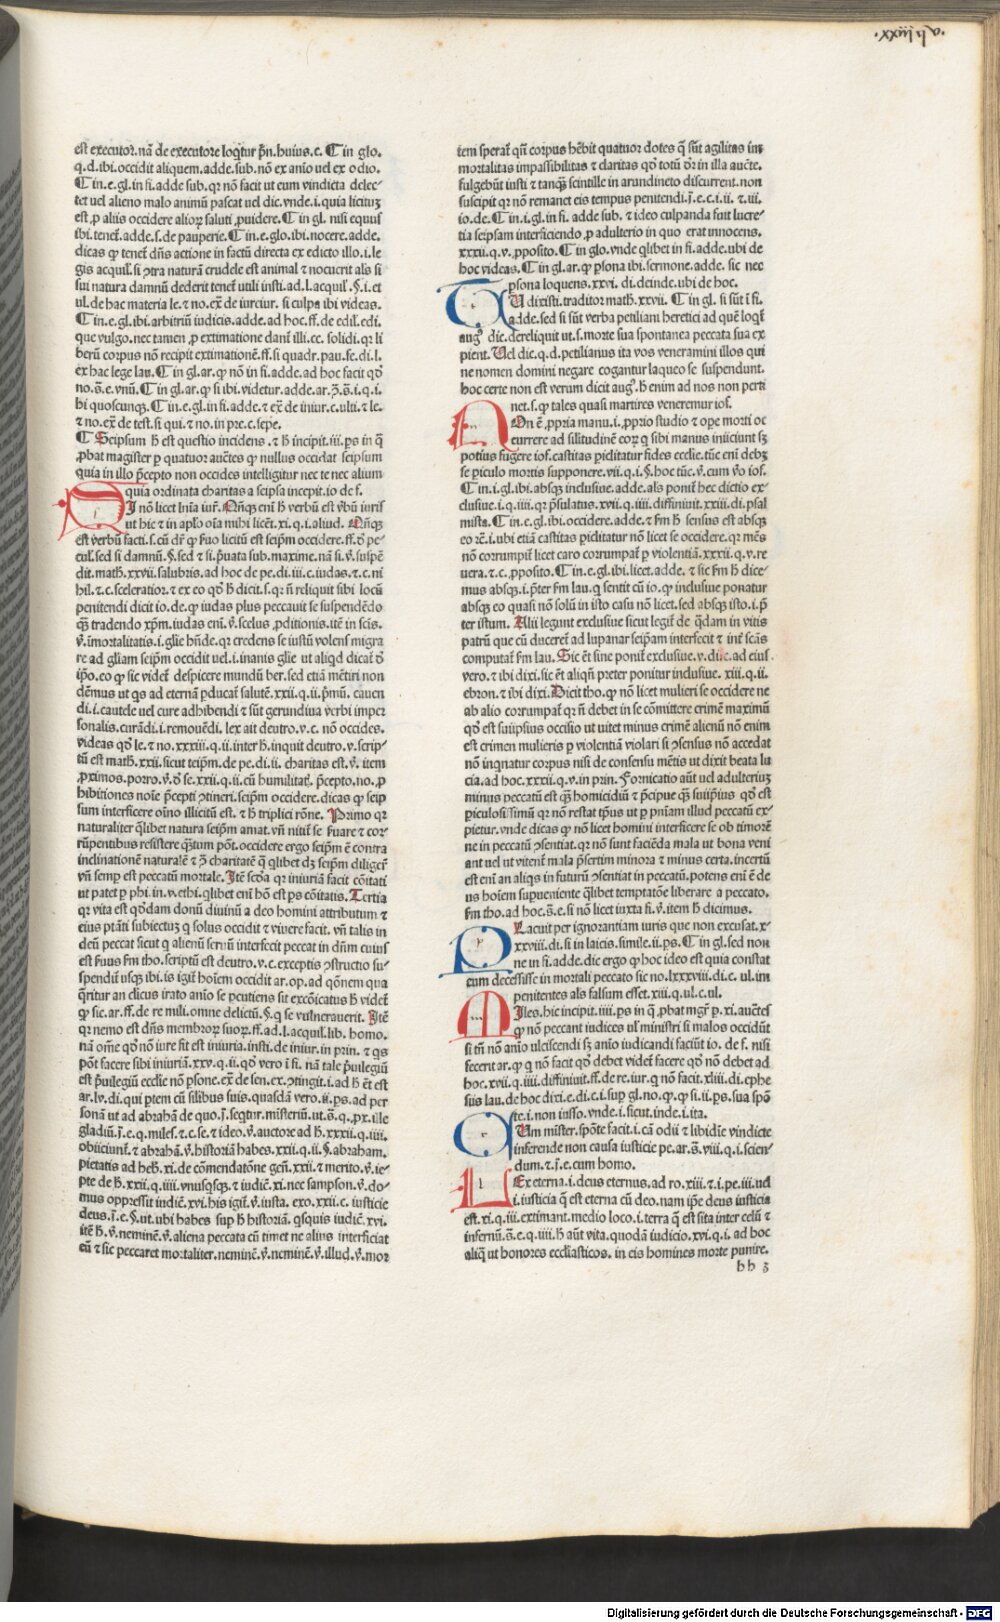 .xxiij q v.
est executor. nã de executore loq̃tur p̃n. huius. c. ¶ in glo.
q. d. ibi. occidit aliquem. adde. sub. nõ ex anĩo uel ex odio.
¶ in. e. gl. in fi. adde sub. qr nõ facit ut eum vindicta delec-
tet uel alieno malo animũ pascat vel dic. vnde. i. quia licituȝ
est, p aliis occidere alioꝝ saluti, puidere. ¶ in gl. nisi equus
ibi. tenet̃. adde. s. de pauperie. ¶ in. e. glo. ibi. nocere. adde.
dicas qp tenet̃ dñs actione in factũ directa ex edicto illo. i. le
gis acquil̃. si ɔtra naturã crudele est animal ⁊ nocuerit al̃s si
sui natura damnũ dederit tenet̃ utili insti. ad. l. acquil̃. §. i. et
ul. de hac materia le. ⁊ no. ex̃ de iureiur. si culpa ibi videas.
¶ in. e. gl. ibi. arbitriũ iudicis. adde. ad hoc. ff. de edil̃. edi.
que vulgo. nec tamen, p extimatione dant̃ illi. cc. solidi. qr li
berũ corpus nõ recipit extimationẽ. ff. si quadr. pau. fe. di. l.
ex hac lege lau. ¶ in gl. ar. qp nõ in fi. adde. ad hoc facit qõ
no. s̃. e. vnũ. ¶ in gl. ar. qp si ibi. videtur. adde. ar. ɔ̃. s̃. i. q. i.
bi quoscunqȝ. ¶ in. e. gl. in fi. adde. ⁊ ex̃ de iniur. c. ulti. ⁊ le.
⁊ no. ex̃ de test. si qui. ⁊ no. in pre. c. sepe.
¶ Seipsum h̃ est questio incidens. ⁊ h̃ incipit. iii. ps in q̃
, pbat magister p quatuor auctẽs qp nullus occidat seipsum
quia in illo p̃cepto non occides intelligitur nec te nec alium
quia ordinata charitas a seipsa incepit. io de f.
SI nõ licet
ut hic ⁊ in aplo oĩa mihi licẽt. xi. q. i. aliud.
est verbũ facti. s. cũ
penitendi dicit io. de. qp iudas plus peccauit se suspendẽdo
qȝ tradendo xp̃m. iudas
re ad gliam seip̃m occidit vel. i. inanis glie ut aliqd dicat̃
ip̃o. eo qp sic videt̃ despicere mundũ ber. sed etiã mẽtiri non
dẽmus ut qs ad eternã pducat̃ salutẽ. xxii. q. ii. p̃mũ. cauen
di. i. cautele vel cure adhibendi ⁊ sũt gerundiua verbi imper
sonalis. curãdi. i. remouẽdi. lex ait deutro. v. c. nõ occides.
videas qõ le. ⁊ no. xxxiii. q. ii. inter h̃. inquit deutro. v. scrip-
tũ est math. xxii. sicut teip̃m. de pe. di. ii. charitas est. ṽ. item
hibitiones noĩe p̃cepti ɔtineri. seip̃m occidere. dicas qp seip
sum interficere oĩno illicitũ est. ⁊ h̃ triplici rõne. Primo qr
naturaliter q̃libet natura seip̃m amat. vñ nitit̃ se
rũpentibus resistere qȝtum põt. occidere ergo seip̃m ẽ contra
inclinationẽ naturalẽ ⁊ ɔ̃ charitatẽ q̃ qlibet dȝ seip̃m diliger̃
vñ semp est peccatũ mortale. Itẽ scõa qr iniuriã facit cõitati
ut patet p phi. in. v. ethi. qlibet eni hõ est ps cõitatis. Tertia
qr vita est qõdam donũ diuinũ a deo homini attributum ⁊
eius ptãti subiectuȝ q̃ solus occidit ⁊ viuere facit. vñ talis in
deũ peccat sicut q̃ alienũ seruũ interfecit peccat in dñm cuius
est
spendiũ usqȝ ibi. is igit̃ hoĩem occidit ar. op. ad qõnem qua
q̃ritur an clicus irato anĩo se peutiens sit excõicatus h̃ videt̃
qp sic. ar. ff. de re mili. omne delictũ. §. q̃ se vulnerauerit. Itẽ
qr nemo est dñs membroꝝ suoꝝ. ff. ad. l. acquil̃. lib. homo.
nã om̃e qõ nõ iure fit est iniuria. insti. de iniur. in prin. ⁊ qs
põt facere sibi iniuriã. xxv. q. ii. qõ vero i fi. nã tale p̃uilegiũ
est p̃uilegiũ ecclie nõ psone. ex̃ de sen. ex. ɔtingit. i. ad h̃ ẽt est
ar. lv. di. qui ptem cũ silibus suis.
sonã ut ad abrahã de quo. j̃. seqtur. misteriũ. ut. s̃. q. px. ille
gladiũ. j̃. e. q. miles. ⁊ c. se. ⁊ ideo. ṽ. auctore ad h̃. xxxii. q. iiii.
obiiciunt̃. ⁊ abraham. ṽ. historiã habes. xxii. q. ii. §. abraham.
pietatis ad heb̃. xi. de cõmendatõne geñ. xxii. ⁊ merito. ṽ. ie-
pte de h̃. xxii. q. iiii. vnusqsqȝ. ⁊ iudic̃. xi. nec sampson. ṽ. do-
mus oppressit iudic̃. xvi. his igit̃. ṽ. iusta. exo. xxii. c. iusticie
deus. j̃. e. §. ut. ubi habes sup h̃ historiã. qsquis iudic̃. xvi.
itẽ h̃. ṽ. neminẽ. ṽ. aliena peccata cũ timet ne alius interficiat
eũ ⁊ sic peccaret mortaliter. neminẽ. ṽ. neminẽ. ṽ. illud. ṽ. mor
tem sperat̃ qñ corpus hẽbit quatuor dotes q̃ sũt agilitas im
mortalitas impassibilitas ⁊ claritas qõ totũ
fulgebũt iusti ⁊ tanqȝ scintille in arundineto discurrent. non
suscipit qr nõ remanet eis tempus penitendi. j̃. e. c. i. ii. ⁊ iii.
io. de. ¶ in. i. gl. in fi. adde sub. ⁊ ideo culpanda fuit lucre-
tia seipsam interficiendo, p adulterio in quo erat innocens.
xxxii. q. v. pposito. ¶ in glo. vnde qlibet in fi. adde. ubi de
hoc videas. ¶ in gl. ar. qp psona ibi. sermone. adde. sic nec
psona loquens. xxvi. di. deinde. ubi de hoc.
TU dixisti. traditor math. xxvii. ¶ in gl. si sũt i fi.
adde. sed si sũt verba petiliani heretici ad quẽ loqt̃
aug̃. dic. dereliquit ut. s. morte sua spontanea peccata sua ex
pient. Vel dic. q. d. petilianus ita vos veneramini illos qui
ne nomen domini negare cogantur laqueo se suspendunt.
hoc certe non est verum dicit aug̃. h̃ enim ad nos non perti
net. s. qp tales quasi martires veneremur ios.
NOn ẽ, ppria manu. i, pprio studio ⁊ ope morti oc
currere ad silitudinẽ eoꝝ q̃ sibi manus iniiciunt sȝ
potius fugere ios. castitas piclitatur fides ecclie. tũc eni debȝ
se piculo mortis supponere. vii. q. i. §. hoc tũc. ṽ. cum
¶ in. i. gl. ibi. absqȝ inclusiue. adde. als ponit̃ hec dictio ex-
clusiue. i. q. iiii. qr p̃sulatus. xvii. q. iiii. diffiniuit. xxiii. di. psal
mista. ¶ in. e. gl. ibi. occidere. adde. ⁊ f̃m h̃ sensus est absqȝ
eo
nõ corrumpit̃ licet caro corrumpat̃ p violentiã. xxxii. q. v. re
vera. ⁊ c. pposito. ¶ in. e. gl. ibi. licet. adde. ⁊ sic f̃m h̃ dice-
mus absqȝ. i. p̃ter f̃m lau. q̃ sentit cũ io. qp inclusiue ponatur
absqȝ eo quasi nõ solũ in isto casu nõ licet. sed absqȝ isto. i. p̃
ter istum. Alii legunt exclusiue sicut legit̃ de q̃dam in vitis
patrũ que cũ duceret̃ ad lupanar seip̃am interfecit ⁊ int̃ scãs
computat̃ f̃m lau. Sic ẽt sine ponit̃ exclusiue. v. di. c. ad eius.
vero. ⁊ ibi dixi. sic ẽt aliqñ preter ponitur inclusiue. xiii. q. ii.
ebron. ⁊ ibi dixi. Dicit tho. qp nõ licet mulieri se occidere ne
ab alio corrumpat̃ qr ñ debet in se cõmittere crimẽ maximũ
qõ est suiipsius occisio ut uitet minus crimẽ alienũ nõ enim
est crimen mulieris p violentiã violari si ɔsensus nõ accedat
nõ inqnatur corpus nisi de consensu mẽtis ut dixit beata lu
cia. ad hoc. xxxii. q. v. in prin. Fornicatio aũt vel adulteriuȝ
minus peccatũ est qȝ homicidiũ ⁊ p̃cipue qȝ suiip̃ius qõ est
piculosissimũ qr nõ restat tp̃us ut p pnĩam illud peccatũ ex-
pietur. vnde dicas qp nõ licet homini interficere se ob timorẽ
ne in peccatũ ɔsentiat. qr nõ sunt faciẽda mala ut bona veni
ant vel ut vitent̃ mala p̃sertim minora ⁊ minus certa. incertũ
est eni an aliqs in futurũ ɔsentiat in peccatũ. potens eni ẽ de
us hoĩem supueniente q̃libet temptatõne liberare a peccato.
f̃m tho. ad hoc. s̃. e. si nõ licet iuxta fi. ṽ. item h̃ dicimus.
PLacuit per ignorantiam iuris que non excusat. x-
xxviii. di. si in laicis. simile. ii. ps. ¶ in gl. sed non
ne in fi. adde. dic ergo qp hoc ideo est quia constat
eum decessisse in mortali peccato sic no. lxxxviii. di. c. ul. in
penitentes als falsum esset. xiii. q. ul. c. ul.
MIles. hic incipit. iiii. ps in q̃. pbat mgr̃ p. xi. auctẽs
qp nõ peccant iudices ul̃ ministri si malos occidũt
si tñ nõ anĩo ulciscendi sȝ anĩo iudicandi faciũt io. de f. nisi
fecerit ar. qp q̃ nõ facit qõ debet videt̃ facere qõ nõ debet ad
hoc. xvii. q. iiii. diffiniuit. ff. de re. iur. q̃ nõ facit. xliii. di. ephe
siis lau. de hoc dixi. e. di. c. i. sup gl. no. qp. qp si. ii. ps. sua spõ
te. i. non iusso. vnde. i. sicut. inde. i. ita.
CUm mĩster. spõte facit. i. cã odii ⁊ libidĩe vindicte
inferende non causa iusticie pe. ar. s̃. viii. q. i. scien-
dum. ⁊ j̃. e. cum homo.
LEx eterna. i. deus eternus. ad ro. xiii. ⁊. i. pe. iii. ul
i. iusticia q̃ est eterna cũ deo. nam ip̃e deus iusticia
est. xi. q. iii. extimant. medio loco. i. terra q̃ est sita inter celũ ⁊
infernũ. s̃. e. q. iiii. h̃ aũt vita. quodã iudicio. xvi. q. i. ad hoc
aliq̃ ut honores ecclĩasticos. in eis homines morte punire.
hh 3
Digitalisierung gefördert durch die Deutsche Forschungsgemeinschaft - DFG